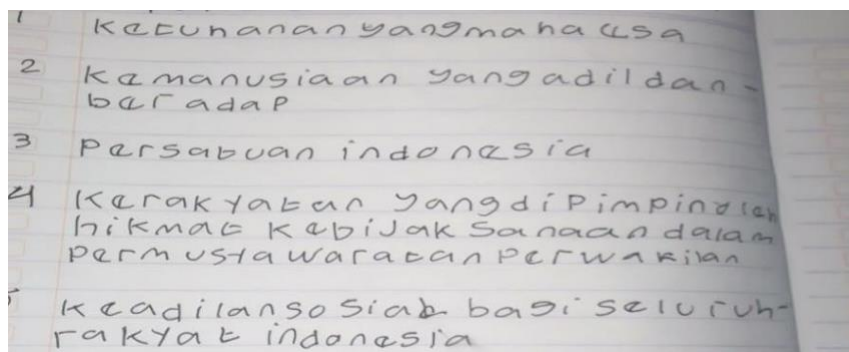 1 Ketuhanan yang maha esa
2 kemanusiaan yang adil dan -
beradap
3 persatuan indonesia
4 Kerakyatan yang dipimpin oleh
hikmat kebijaksanaan dalam
permustawaratan perwakilan
5 keadilan sosial bagi seluruh-
rakyat indonesia